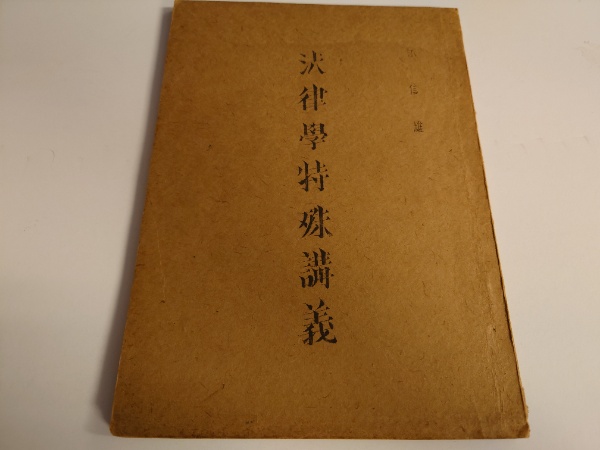 法律學特殊講義